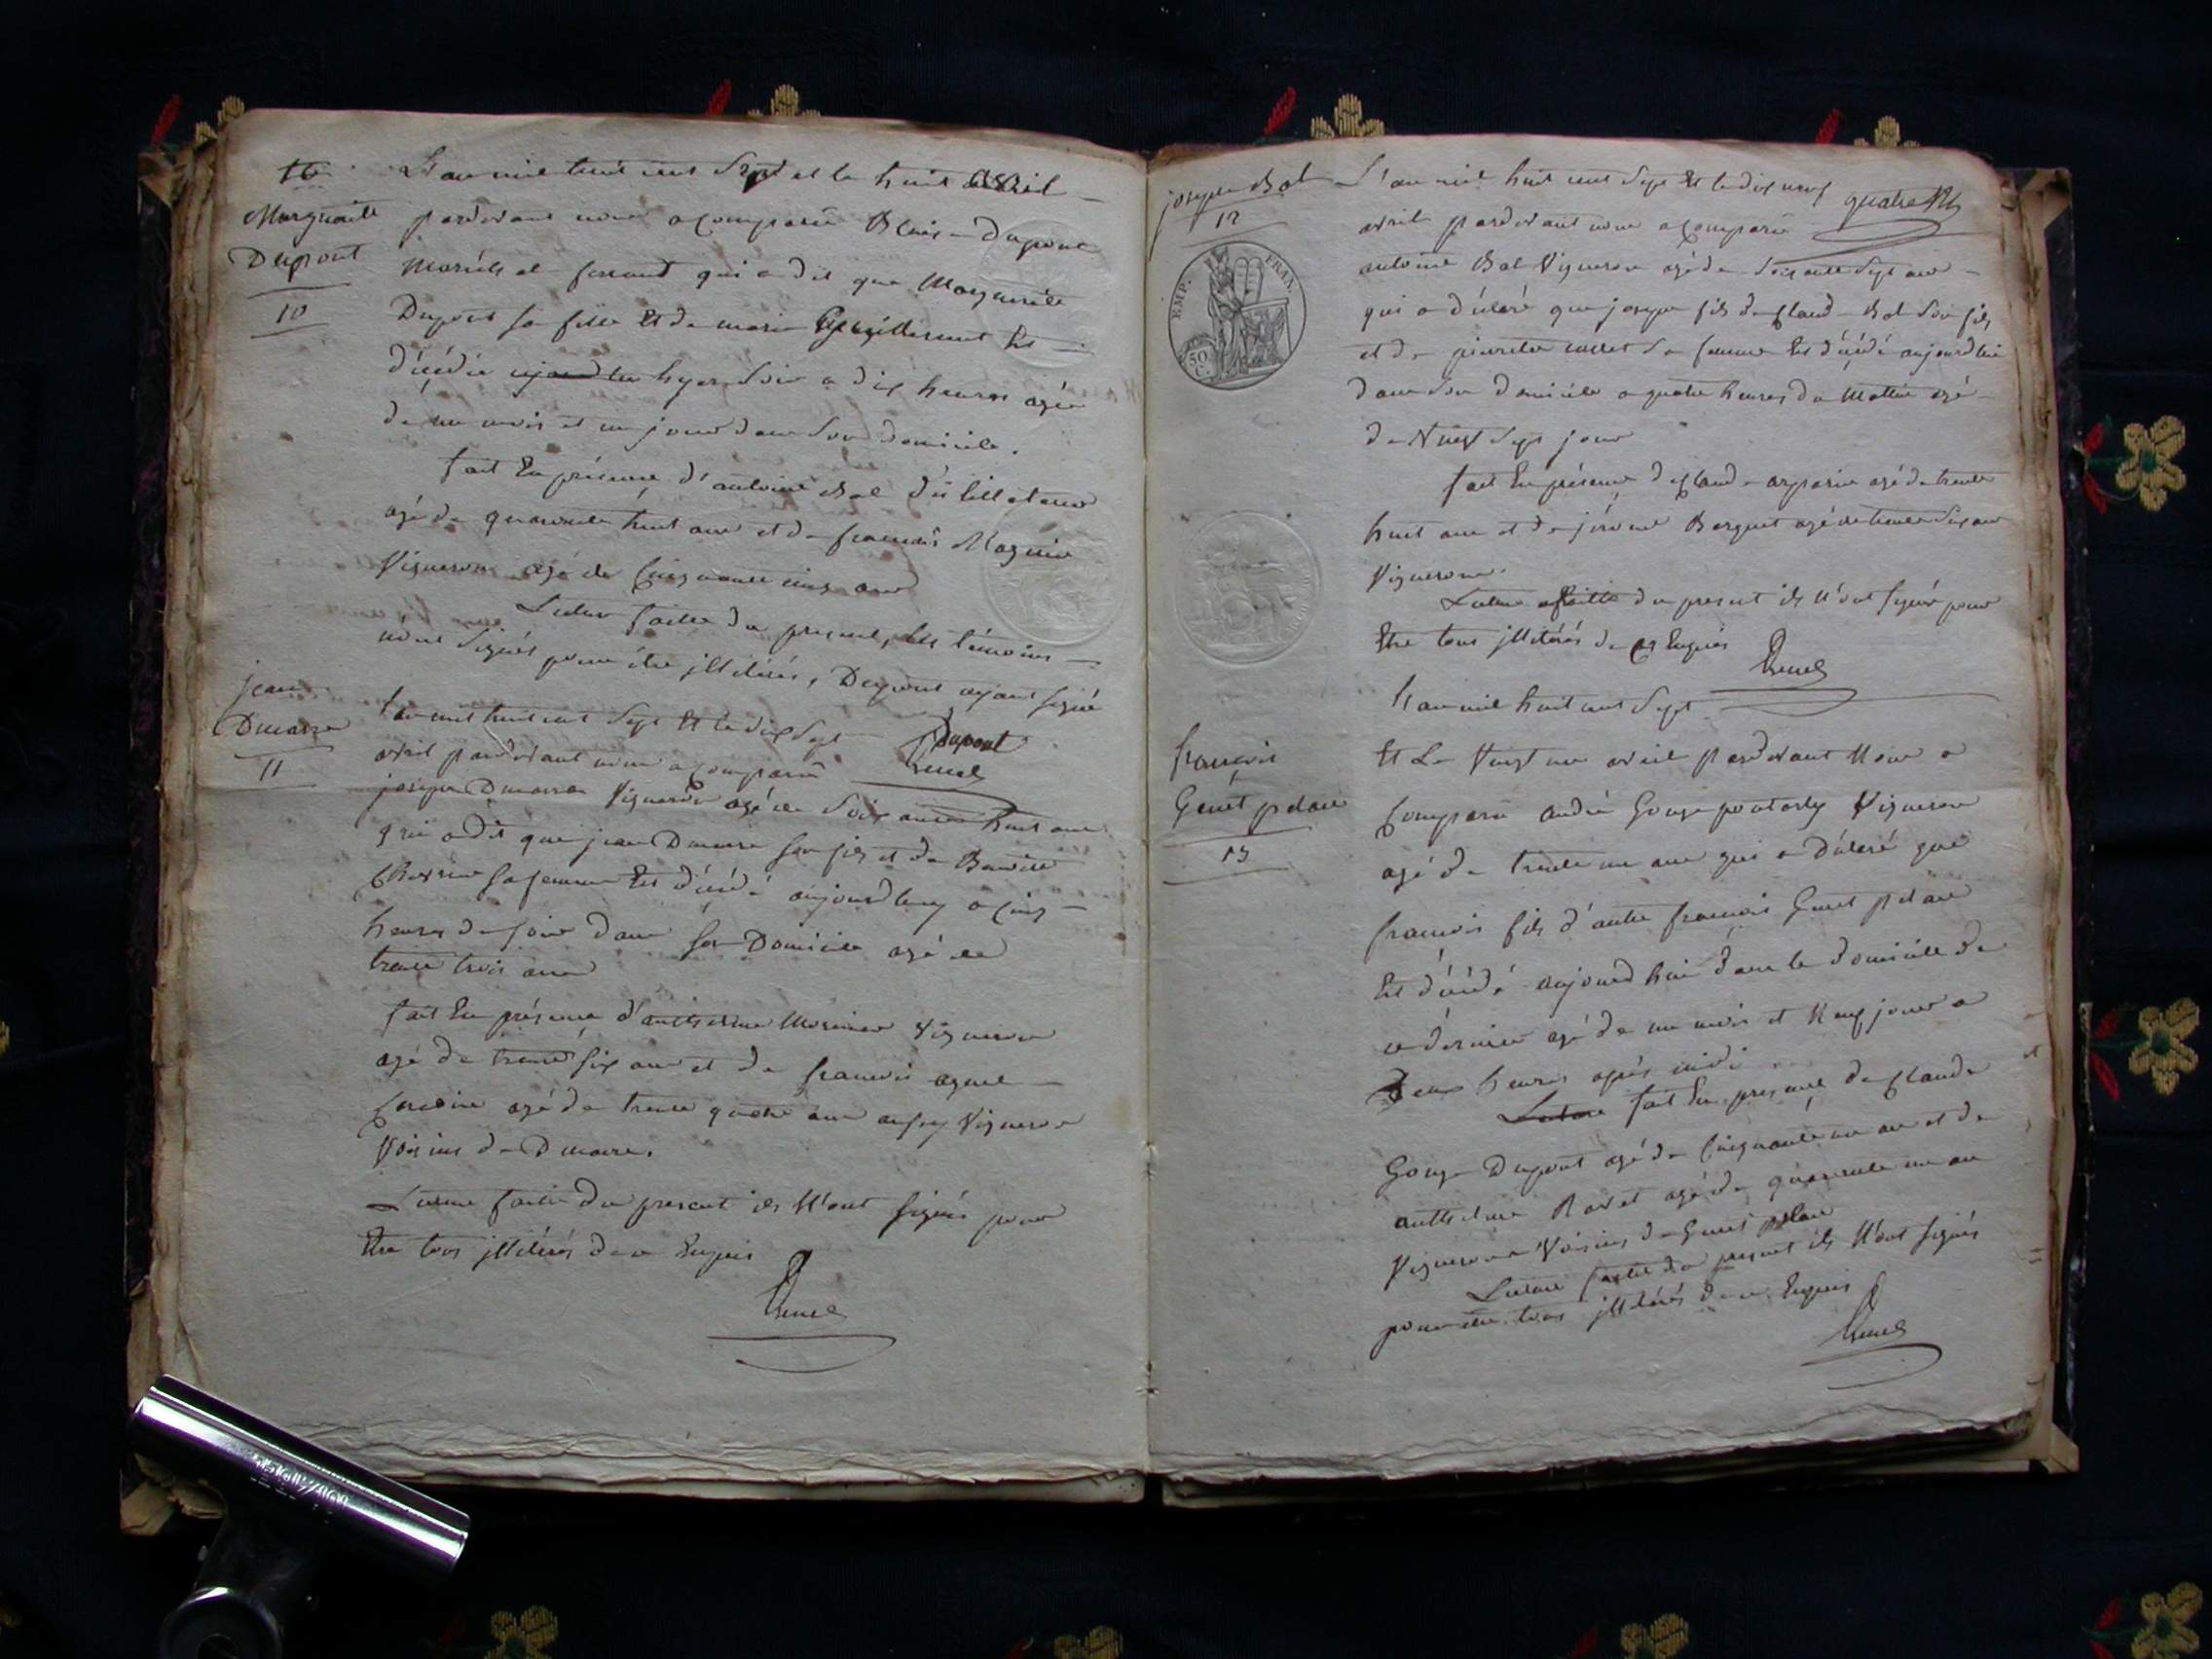 Marguerite
Dupont
10
L'an mil huit cent Sept et le huit avril
pardevant nous a Comparu Blaise Dupont
Maréchal ferrant qui a dit que Marguerite
Dupont sa fille Et de marie Est
décédée hyer Soir a dix heures agée
de un mois et un jour dans Son domicile.
fait En présence d'antoine Bal
agé de quarante huit ans et de francois
Vigneron agé de Cinquante cinq ans
Lecture faitte du present, les témoins
nont Signés pour être illiterés, Dupont ayant signé
Dupont
jean
Dumaire
11
L'an mil huit cent Sept Et le dix Sept
avril pardevant nous a Comparu
joseph Dumaire Vigneron agé de Soixante huit ans
qui a dit que jean Dumaire Son fils et de Benoite
sa femme Est décédé aujourdhuy a Cinq
heures du soir dans Son Domicile agé de
trente trois ans
fait En présence d'anthelme Vigneron
agé de trente six ans et de francois
agé de trente quatre ans aussy Vigneron
Voisins de Dumaire.
Lecture faitte du present ils N'ont signés pour
Etre tous illiterés de ce Enquis
joseph Bal
12
EMP. FRAN.
50 C.
L'an mil huit cent Sept Et le dix neuf
quatre
avril pardevant nous a Comparu
antoine Bal Vigneron agé de Soixante Sept ans
qui a déclaré que joseph fils de Claude Bal Son fils
et de sa femme Est décédé aujourdhui
dans Son Domicile a quatre heures du Mattin agé
de Vingt Sept jours
fait En présence de Claude agé de trente
huit ans et de jérome agé de trente Six ans
Vignerons.
Lecture faitte du present ils N'ont signés pour
Etre tous illiterés de ce Enquis
francois
Genet
13
L'an mil huit cent Sept
Et Le Vingt un avril Pardevant Nous a
Comparu andré Vigneron
agé de trente un ans qui a Déclaré que
francois fils d'autre francois Genet
Est décédé aujourd'hui dans le domicile de
ce dernier agé de un mois et Neuf jours a
Deux heures après midi
Lecture fait En presence de Claude
Dupont agé de Cinquante un an et de
anthelme agé de quarante un an
Vignerons Voisins de Genet
Lecture faitte du present ils N'ont signés
pour être tous illiterés de ce Enquis